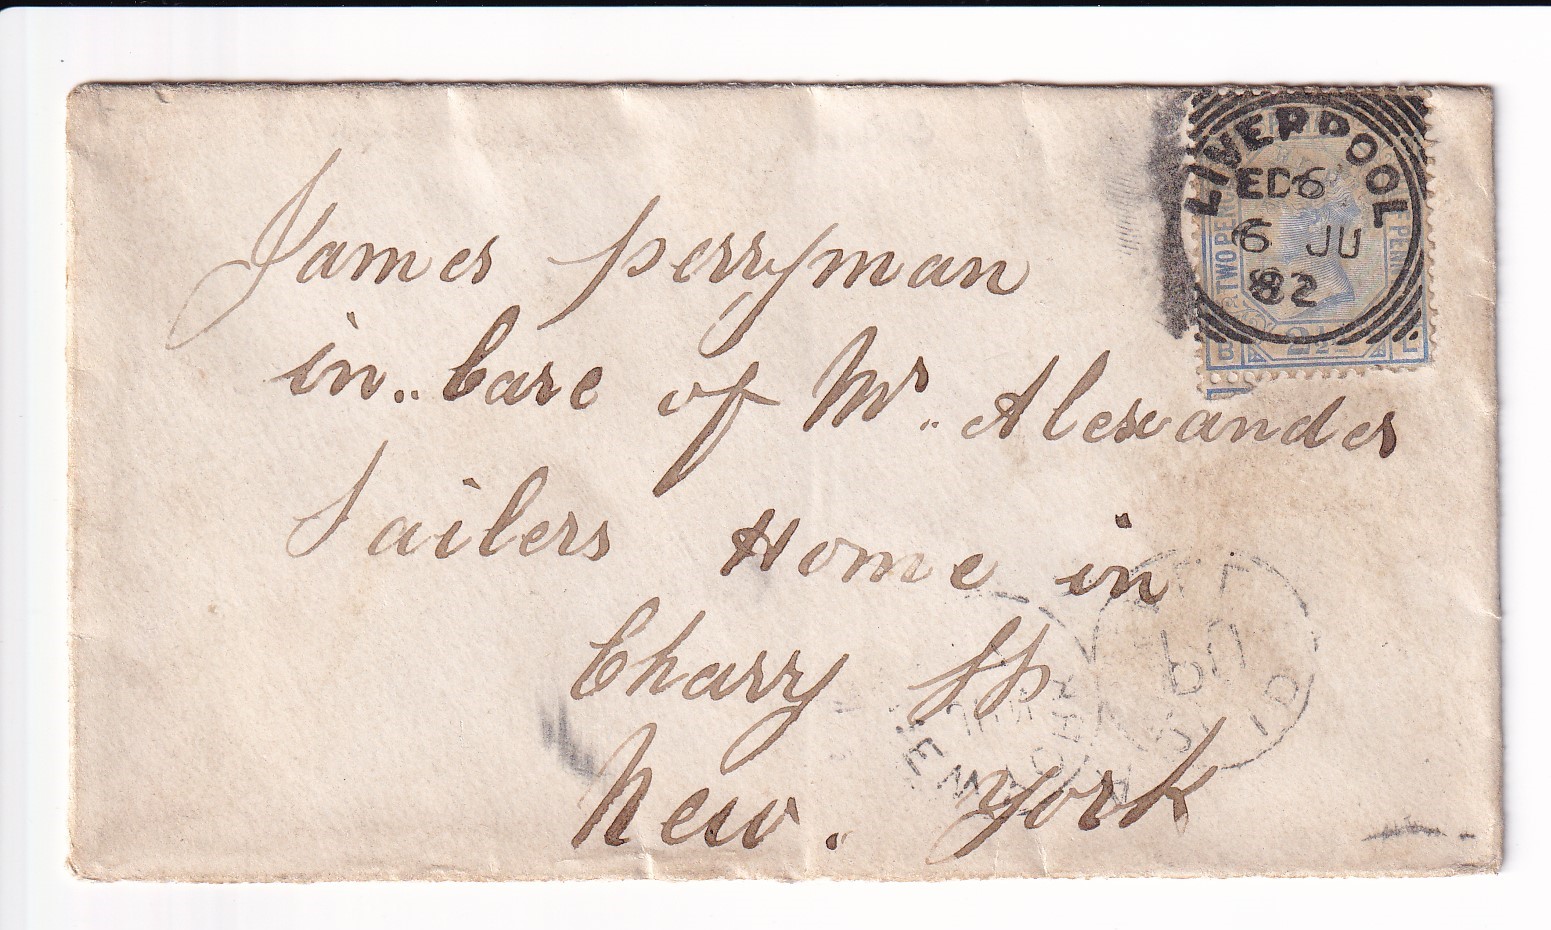 LIVERPOOL
ED 6
6 JU
82
TWO PEN
PENN
2½
B L
James perryman
in.. Care of Mr.. Alexander
Sailers Home in
Charry St
New. york
NEW
PAID